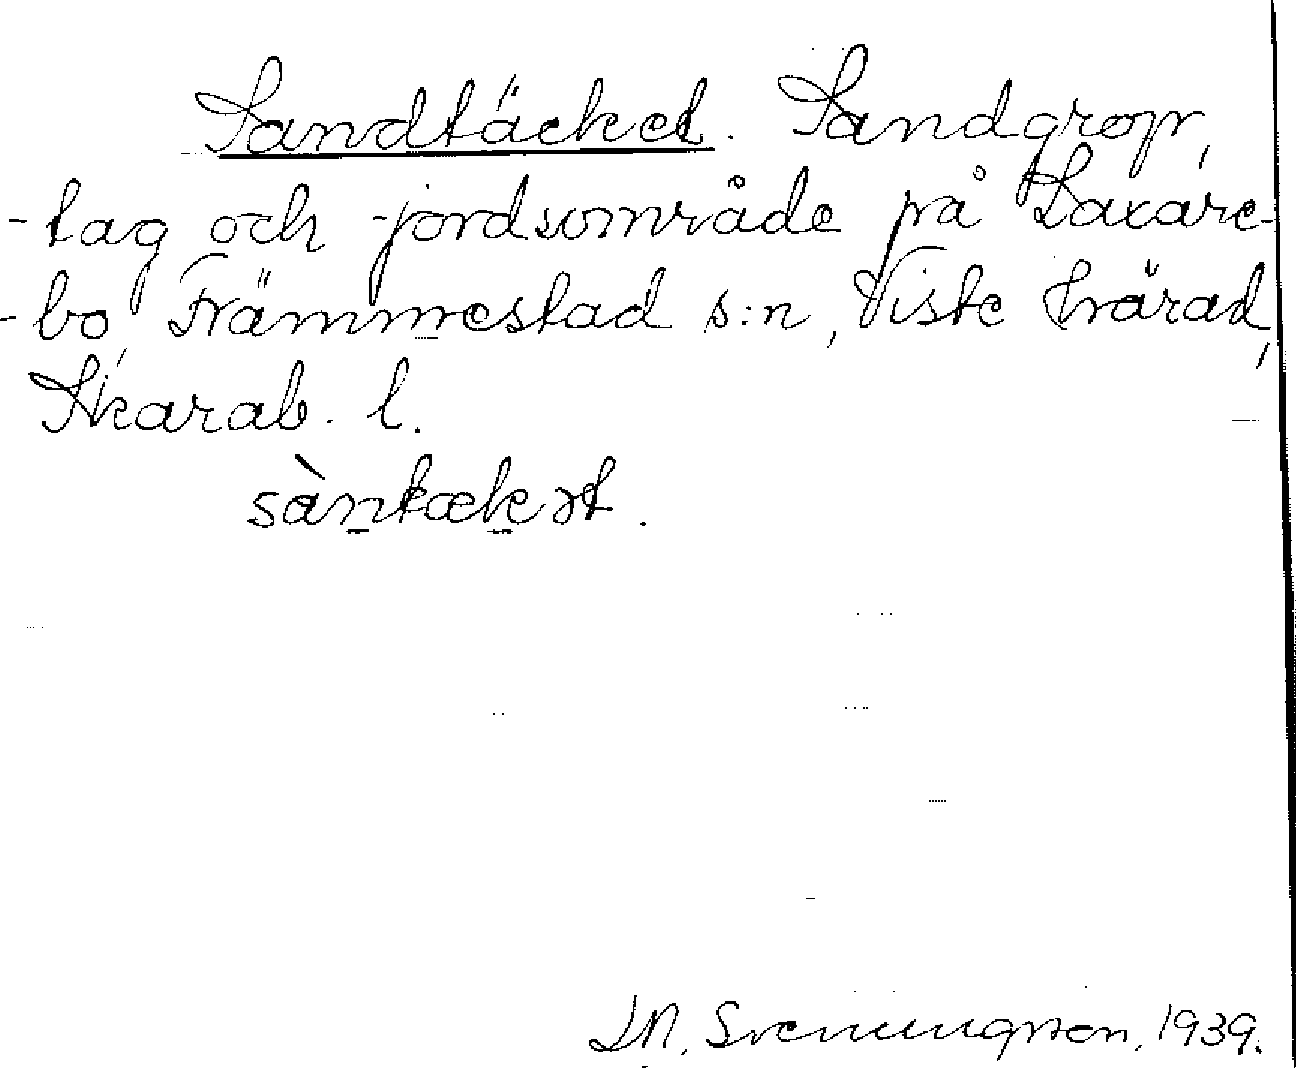 Sandtäcket. Sandgrop,
-tag och -jordsområde på Laxåre-
-bo, Främmestad s:n, Viste härad,
Skarab. l.
sàntækət.
Svenungsson. 1939.